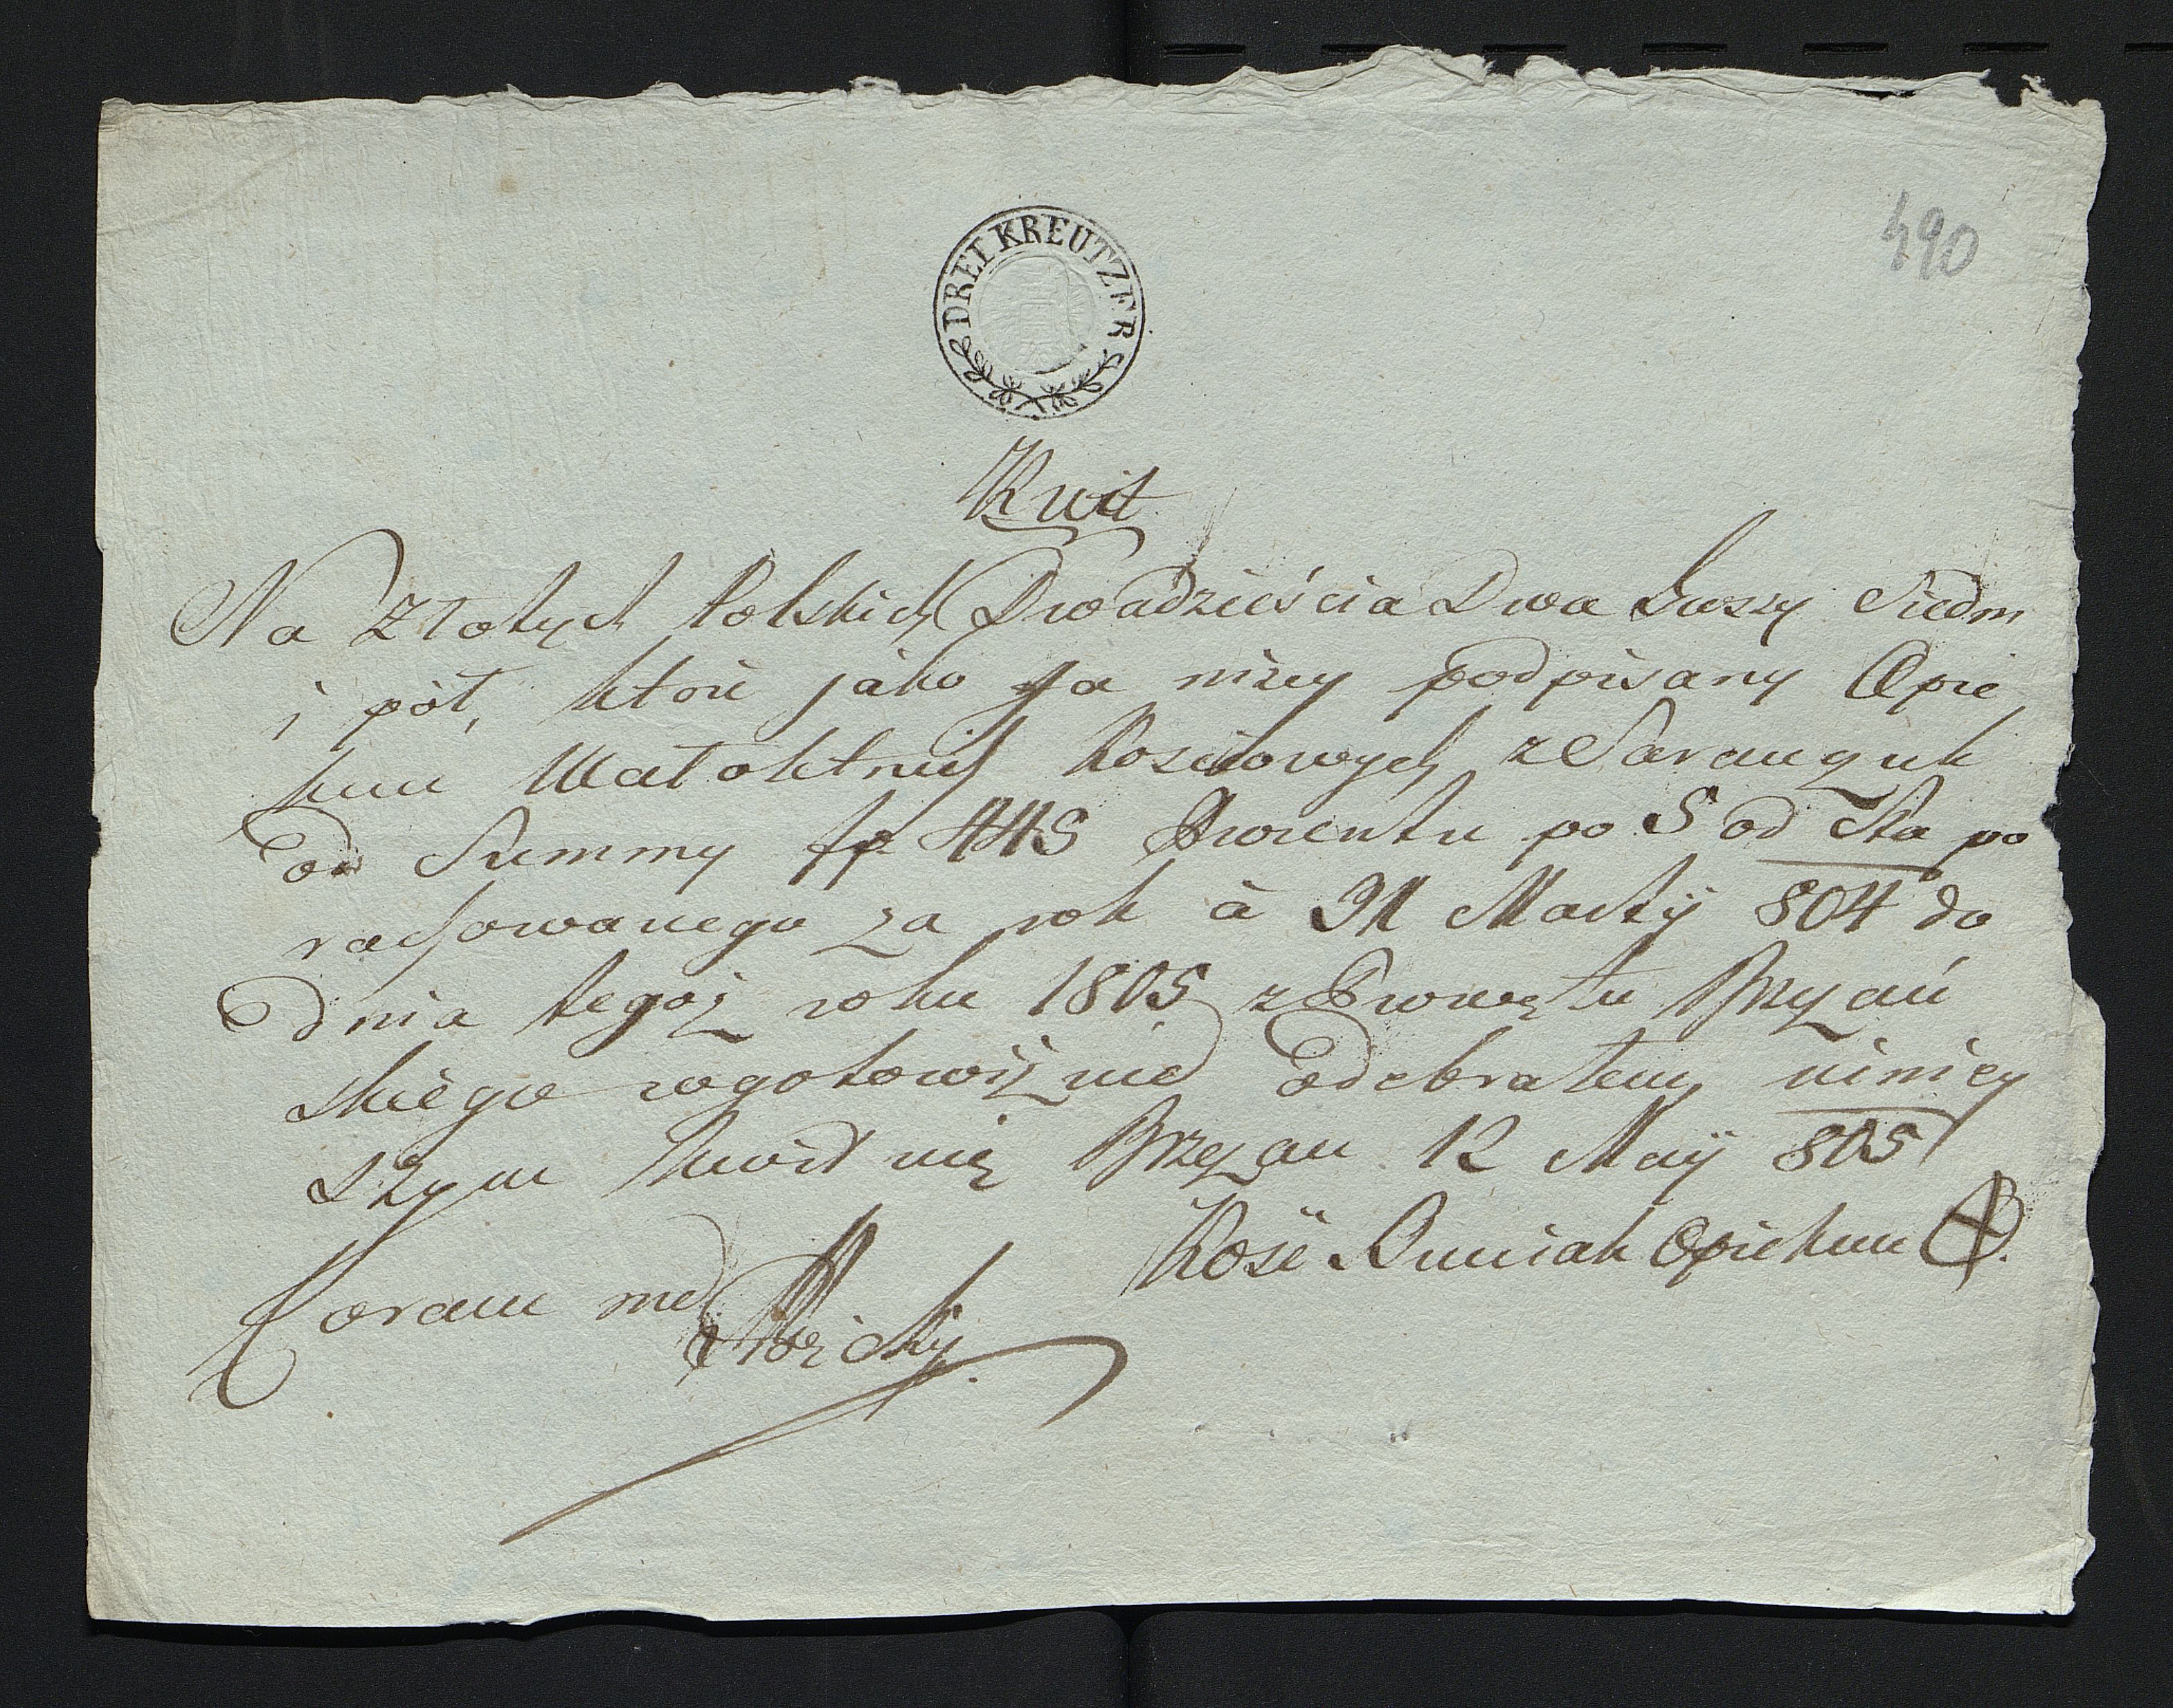 490
DREI KREUTZER
Kwit
Na Złotych Polskich Dwadzieścia Dwa Suszy Siedm
i pół, które jako Ja niżey podpisany Opie
kun Małoletnich z Saranczuk
od Summy fp 445 Prowentu po 5 od Sta po
rachowanego za rok à 31 Martij 804 do
dnia tegoż roku 1805 z Brzezań
skiego w gotowiźnie odebrałem niniey
szym kwituię Brzezan 12 Maij 805
Coram me Opiekun